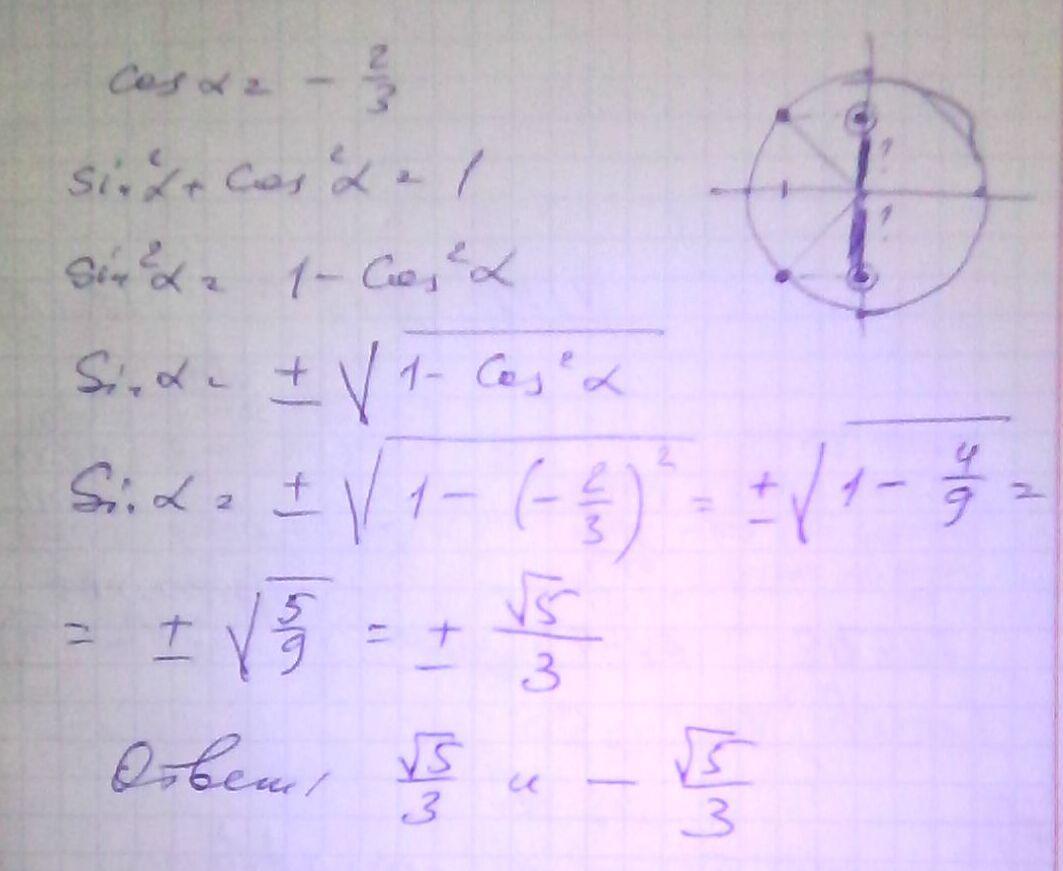 cos α = - 2/3
sin²α + cos²α = 1
sin²α = 1 - cos²α
sin α = ± √(1 - cos²α)
sin α = ± √(1 - (-2/3)²) = ± √(1 - 4/9) =
= ± √(5/9) = ± √5/3
Ответ: √5/3 и - √5/3
? ?